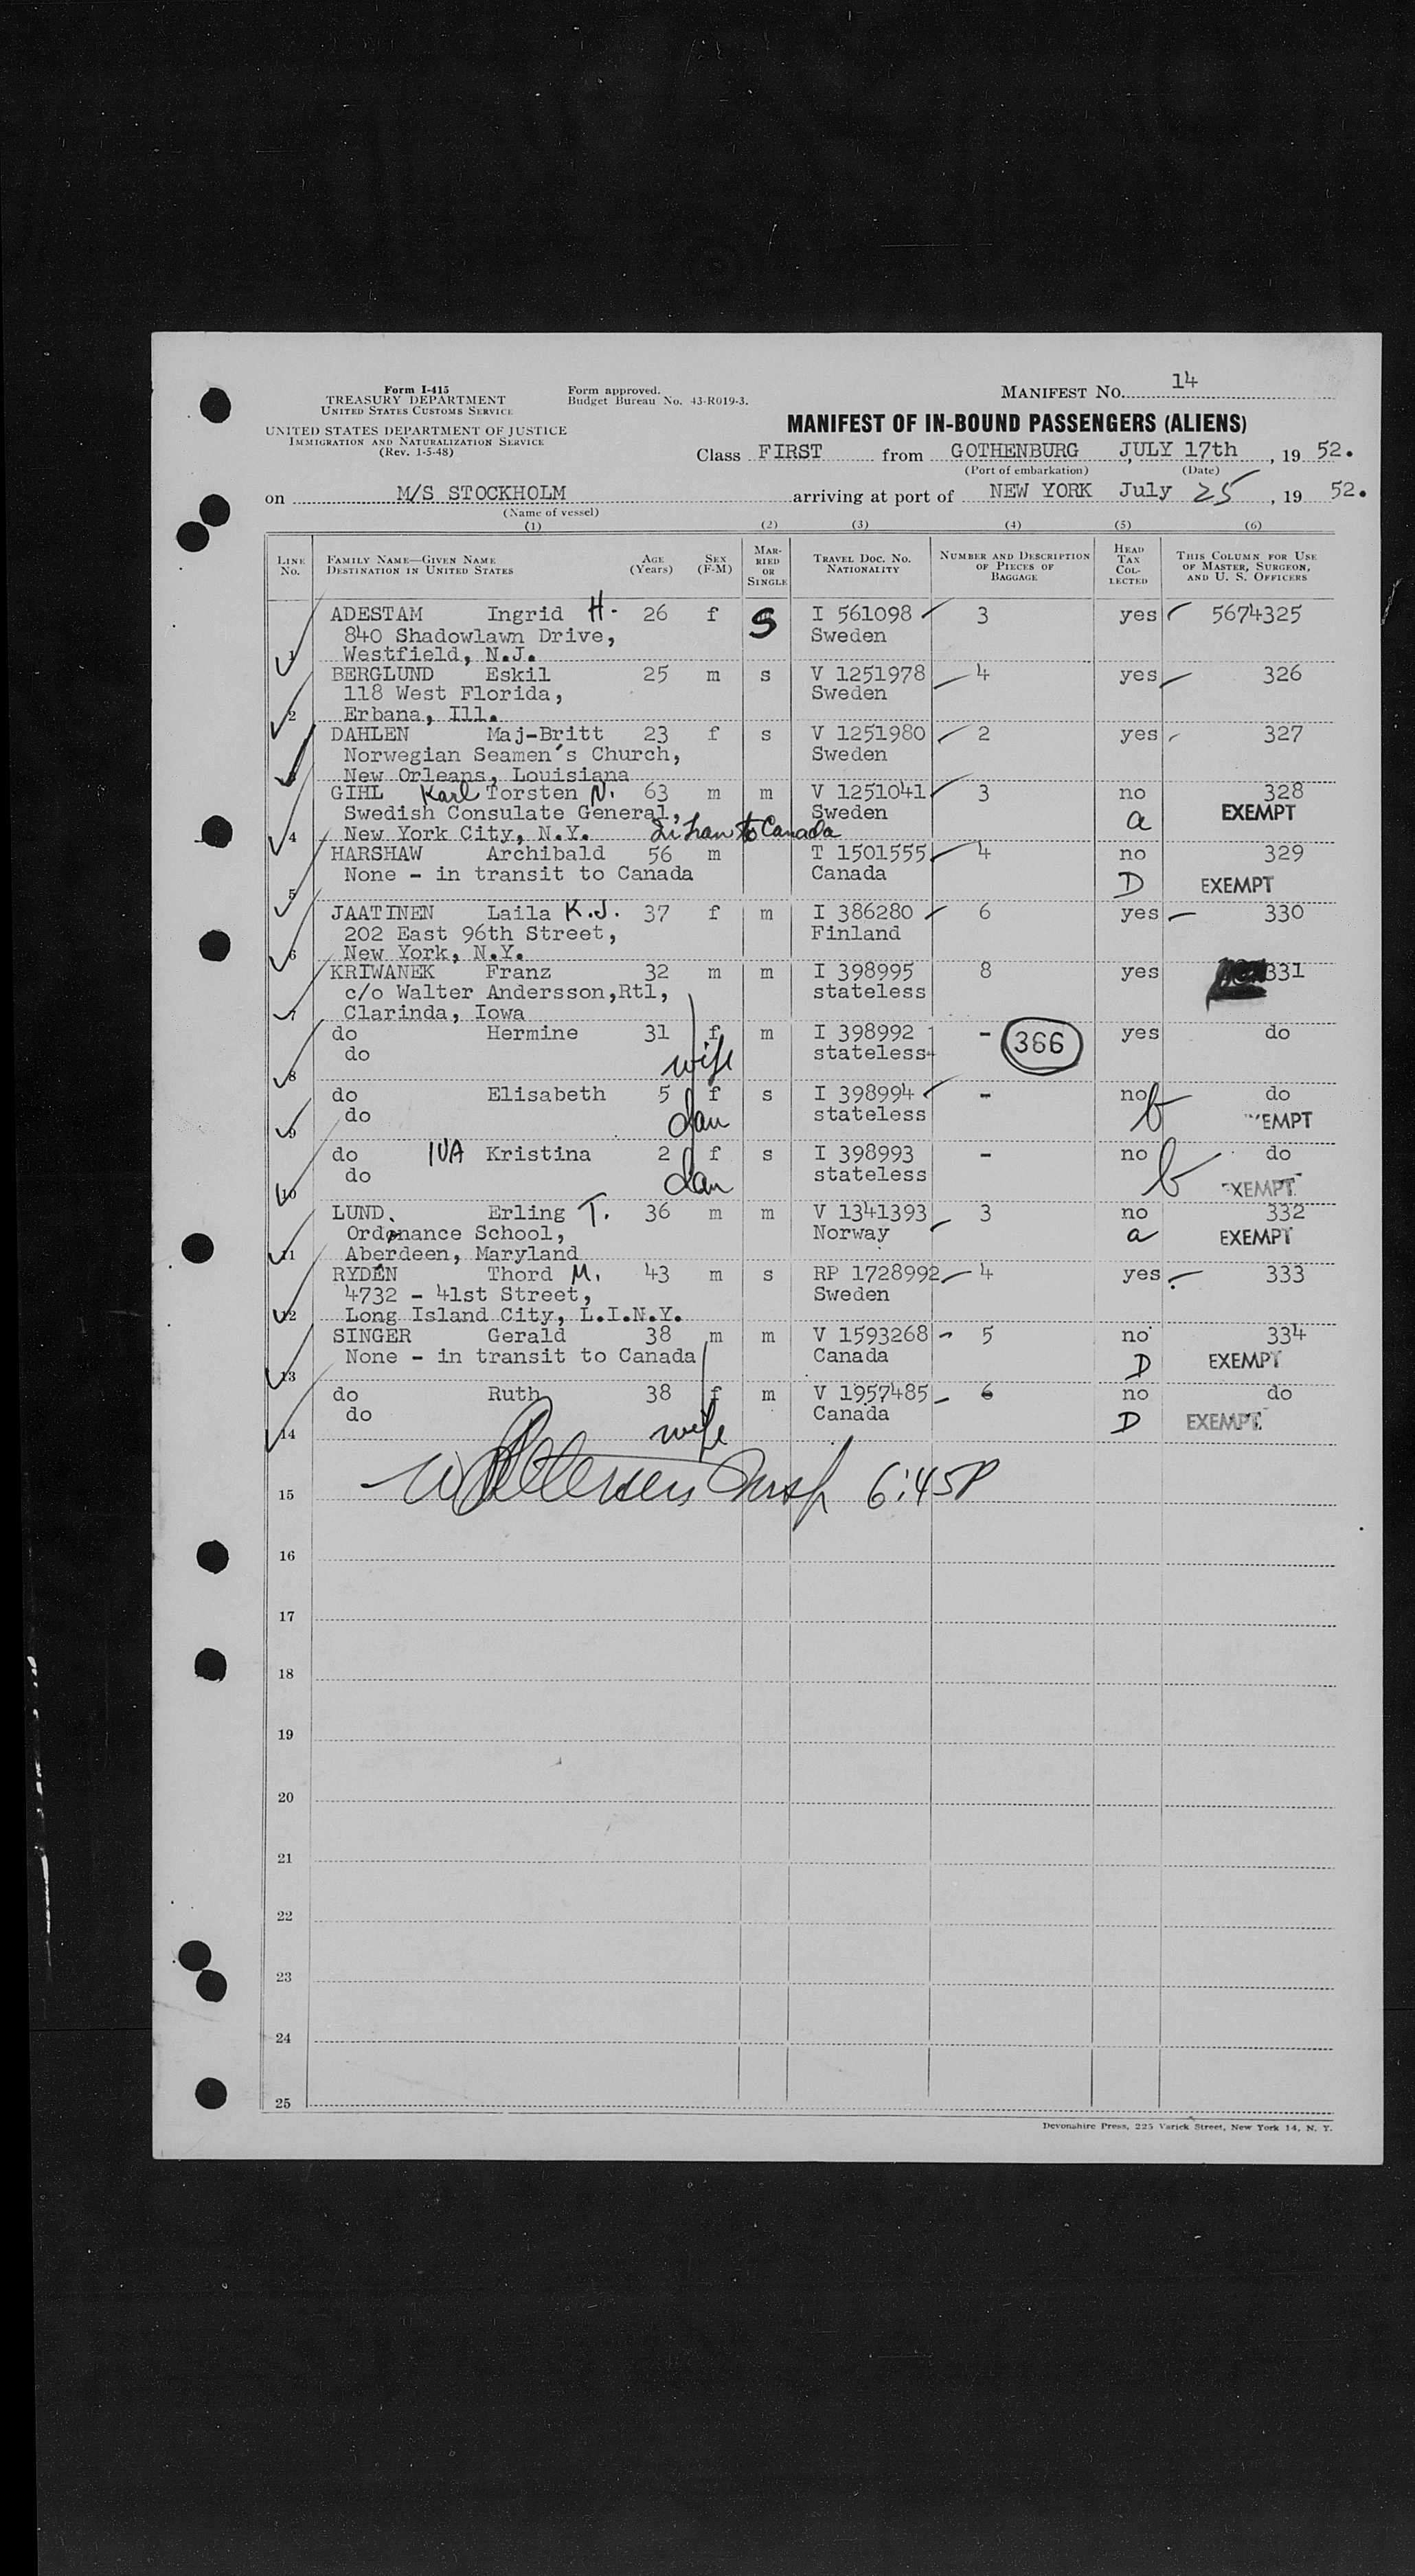 Form I-415
TREASURY DEPARTMENT
UNITED STATES CUSTOMS SERVICE
UNITED STATES DEPARTMENT OF JUSTICE
IMMIGRATION AND NATURALIZATION SERVICE
(Rev. 1-5-48)
Form approved.
Budget Bureau No. 43-R019-3.
MANIFEST NO. 14
MANIFEST OF IN-BOUND PASSENGERS (ALIENS)
Class FIRST from GOTHENBURG JULY 17th, 19 52.
(Port of embarkation) (Date)
on M/S STOCKHOLM arriving at port of NEW YORK July 25, 19 52.
(Name of vessel)
(1) (2) (3) (4) (5) (6)
LINE No. FAMILY NAME—GIVEN NAME DESTINATION IN UNITED STATES AGE (Years) SEX (F-M) MARRIED OR SINGLE TRAVEL DOC. NO. NATIONALITY NUMBER AND DESCRIPTION OF PIECES OF BAGGAGE HEAD TAX COLLECTED THIS COLUMN FOR USE OF MASTER, SURGEON, AND U. S. OFFICERS
ADESTAM Ingrid H. 26 f S I 561098 3 yes 5674325
840 Shadowlawn Drive, Sweden
1 Westfield, N.J.
BERGLUND Eskil 25 m s V 1251978 4 yes 326
118 West Florida, Sweden
2 Erbana, Ill.
DAHLEN Maj-Britt 23 f s V 1251980 2 yes 327
Norwegian Seamen's Church, Sweden
3 New Orleans, Louisiana
GIHL Karl Torsten N. 63 m m V 1251041 3 no 328
Swedish Consulate General, Sweden a EXEMPT
4 New York City, N.Y. In tran to Canada
HARSHAW Archibald 56 m T 1501555 4 no 329
None - in transit to Canada Canada D EXEMPT
5
JAATINEN Laila K.J. 37 f m I 386280 6 yes 330
202 East 96th Street, Finland
6 New York, N.Y.
KRIWANEK Franz 32 m m I 398995 8 yes 331
c/o Walter Andersson,Rtl, stateless
7 Clarinda, Iowa
do Hermine 31 f m I 398992 - 366 yes do
do wife stateless
8
do Elisabeth 5 f s I 398994 - no b do
do dau stateless EMPT
9
do IVA Kristina 2 f s I 398993 - no b do
do dau stateless EXEMPT
10
LUND, Erling T. 36 m m V 1341393 3 no 332
Ordonance School, Norway a EXEMPT
11 Aberdeen, Maryland
RYDÉN Thord M. 43 m s RP 1728992 4 yes 333
4732 - 41st Street, Sweden
12 Long Island City, L.I.N.Y.
SINGER Gerald 38 m m V 1593268 5 no 334
None - in transit to Canada Canada D EXEMPT
13
do Ruth 38 f m V 1957485 6 no do
do wife Canada D EXEMPT
14
15 Insp 6:45P
16
17
18
19
20
21
22
23
24
25
Devonshire Press, 225 Varick Street, New York 14, N. Y.